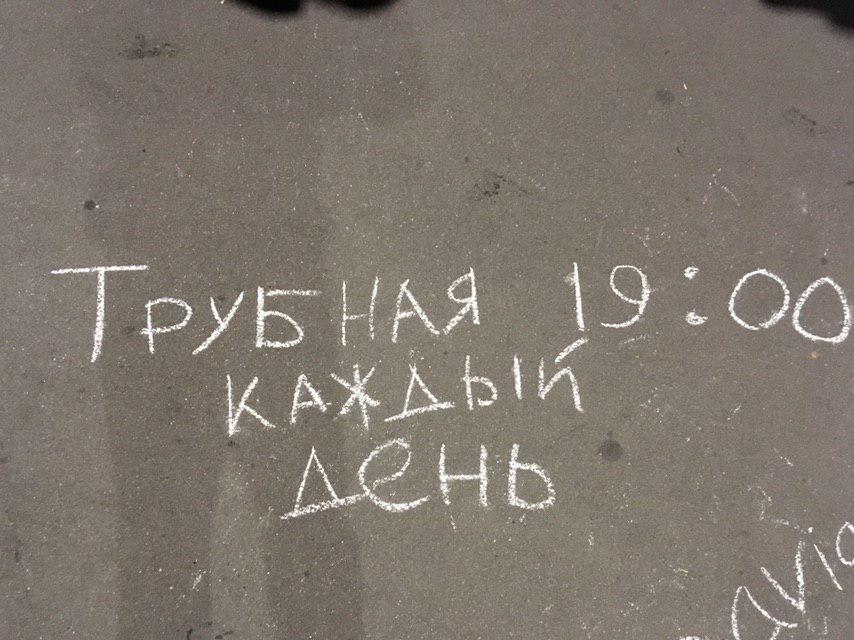 Трубная 19:00
каждый
день